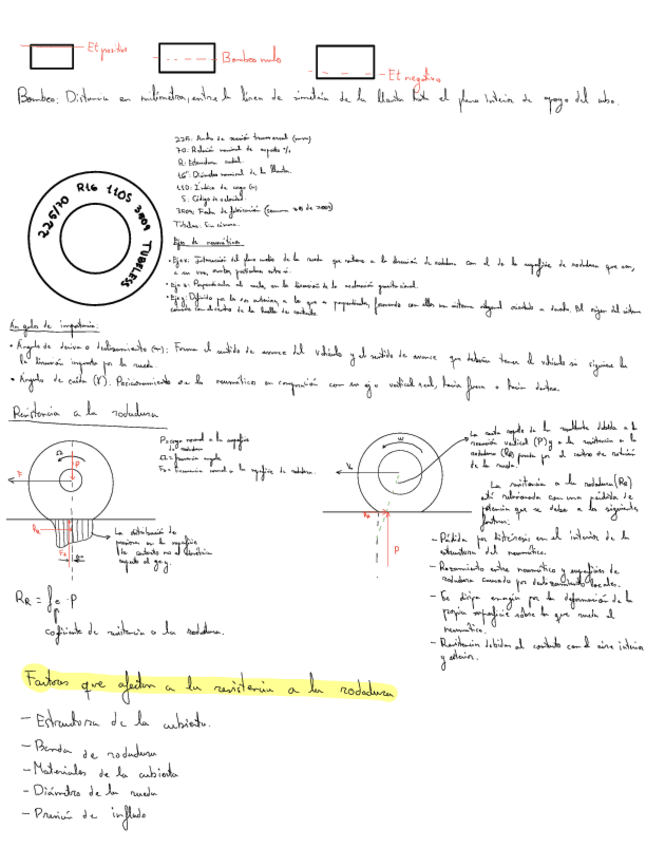 Et positivo
Bombeo nulo
Et negativo
Bombeo: Distancia en milímetros, entre la línea de simetría de la llanta hasta el plano interior de apoyo del cubo.
225: Ancho de sección transversal (mm)
70: Relación nominal de aspecto %
R: Estructura radial.
16": Diámetro nominal de la llanta.
110: Índice de carga
S: Código de velocidad.
3009: Fecha de fabricación
Tubeless: Sin cámara.
225/70 R16 110S 3009 TUBELESS
Ejes de neumático
• Eje x: Intersección del plano medio de la rueda con el de la superficie de rodadura
• Eje z: Perpendicular al suelo, en la dirección de la aceleración gravitacional.
• Eje y: Definido por los dos anteriores, a los que es perpendicular, formando con ellos un sistema
Ángulos de importancia:
• Ángulo de deriva o deslizamiento (α): Forma el sentido de avance del vehículo y el sentido de avance que debería tener el vehículo si siguiera la
la dirección impuesta por la rueda.
• Ángulo de caída (γ): Posicionamiento de los neumáticos en comparación con su eje vertical real, hacia fuera o hacia dentro.
Resistencia a la rodadura
Ω
P
F
P = carga normal a la superficie
de rodadura
Ω = frecuencia angular
normal a la superficie de rodadura.
La distribución de
presiones en la superficie
de contacto no es simétrica
respecto al eje y.
R_R = f_r · P
coeficiente de resistencia a la rodadura.
ω
P
La recta soporte de la resultante debida a la
reacción vertical (P) y a la resistencia a la
rodadura (R_R) pasa por el centro de rotación
de la rueda.
La resistencia a la rodadura (R_R)
está relacionada con una pérdida de
potencia que se debe a los siguientes
factores:
- Pérdida por histéresis en el interior de la
estructura del neumático.
- Rozamiento entre neumático y superficie de
rodadura causado por deslizamientos locales.
- Se disipa energía por la deformación de la
propia superficie sobre la que rueda el
neumático.
- Resistencia debidas al contacto con el aire interior
y exterior.
Factores que afectan a la resistencia a la rodadura
- Estructura de la cubierta.
- Banda de rodadura
- Materiales de la cubierta
- Diámetro de la rueda
- Presión de inflado